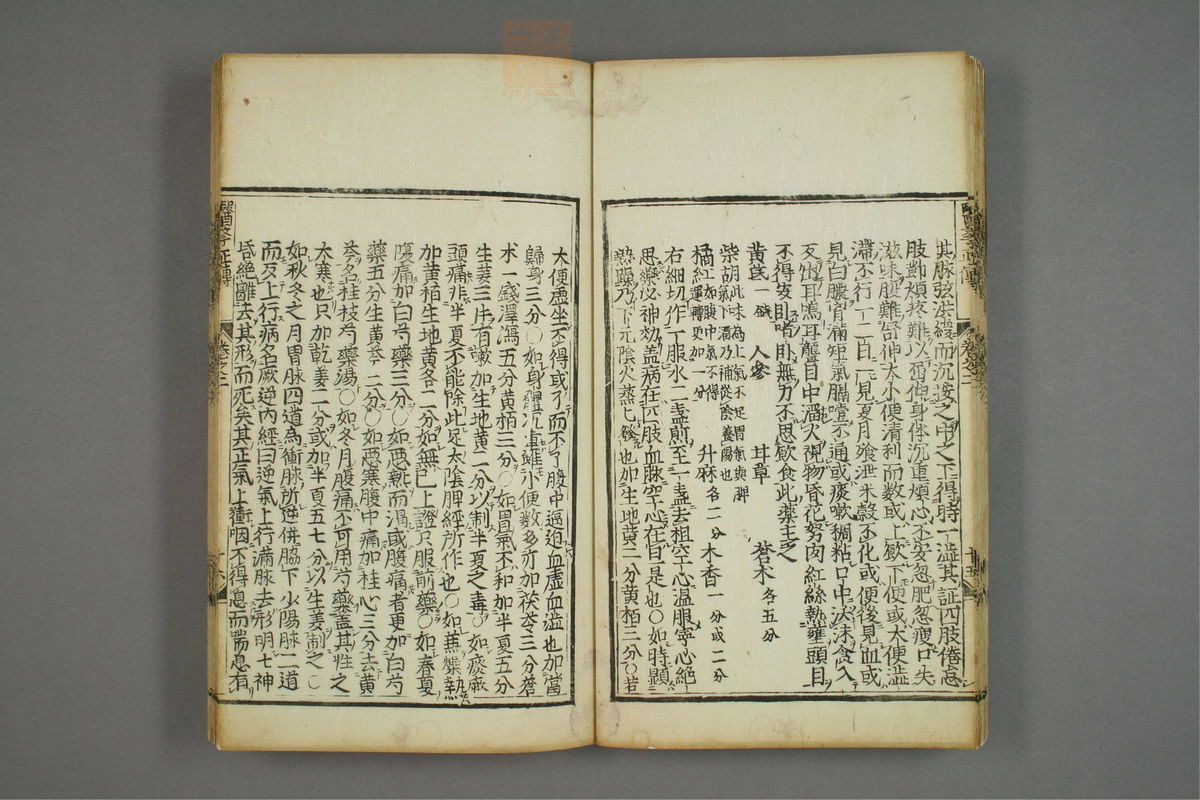 其脉弦洪緩而沉按之中之下得時一澁其証四肢倦怠
肢節煩疼難以屈伸身体沉重煩心不安忽肥忽瘦口失
滋味腹難舒伸大小便清利而数或上飲下便或大便澁
滞不行一二日一見夏月飧泄米穀不化或便後見血或
見白膿胷滿短氣膈噎不通或痰嗽稠粘口中涎沫食入
反出耳鳴耳聾目中溜火視物昏花努肉紅絲熱壅頭目
不得安卧嗜卧無力不思飲食此藥主之
黃芪一錢 人參 甘草 蒼木各五分
柴胡此味為上氣不足胃氣與脾氣下溜乃補從陰養陽也 升麻各二分 木香一分或二分
橘紅如腹中氣不得運轉更如一分
右細切作一服水二盞煎至一盞去柤空心温服寧心絕
思藥必神効盖病在四肢血脉空心在旦是也〇如時顯
熱躁乃下元陰火蒸〻發也加生地黃二分黃栢三分〇若
大便虛坐不得或了而不了腹中逼迫血虛血澁也加當
歸身三分〇如身體沉重雖小便数多亦加茯苓三分蒼
术一錢澤瀉五分黃栢三分〇如胃氣不和加半夏五分
生姜三片有嗽加生地黃二分以制半夏之毒〇如痰厥
頭痛非半夏不能除此足太陰脾經所作也〇如蕪燥熱
加黃栢生地黃各二分如無已上證只服前藥〇如春夏
腹痛加白芍藥三分〇如惡熱而渴或腹痛者更加白芍
藥五分生黃芩二分〇如惡寒腹中痛加桂心三分去黃
芩名桂枝芍藥湯〇如冬月腹痛不可用芍藥盖其性之
大寒也只加乾姜二分或加半夏五七分以生姜制之〇
如秋冬之月胃脉四道為衝脉所逆併脇下少陽脉二道
而反上行病名厥逆內經曰逆氣上行滿脉去形明七神
昏絕離去其形而死矣其正氣上衝咽不得息而喘息有
卷之二